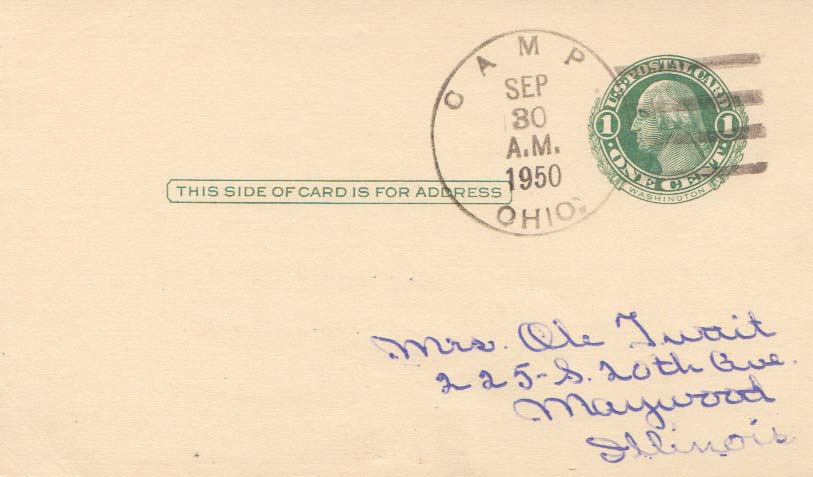 CAMP
SEP
30
A.M.
1950
OHIO
U.S. POSTAL CARD
1 1
ONE CENT
WASHINGTON
THIS SIDE OF CARD IS FOR ADDRESS
Mrs. Ole Twait
225-S. 20th Ave.
Maywood
Illinois